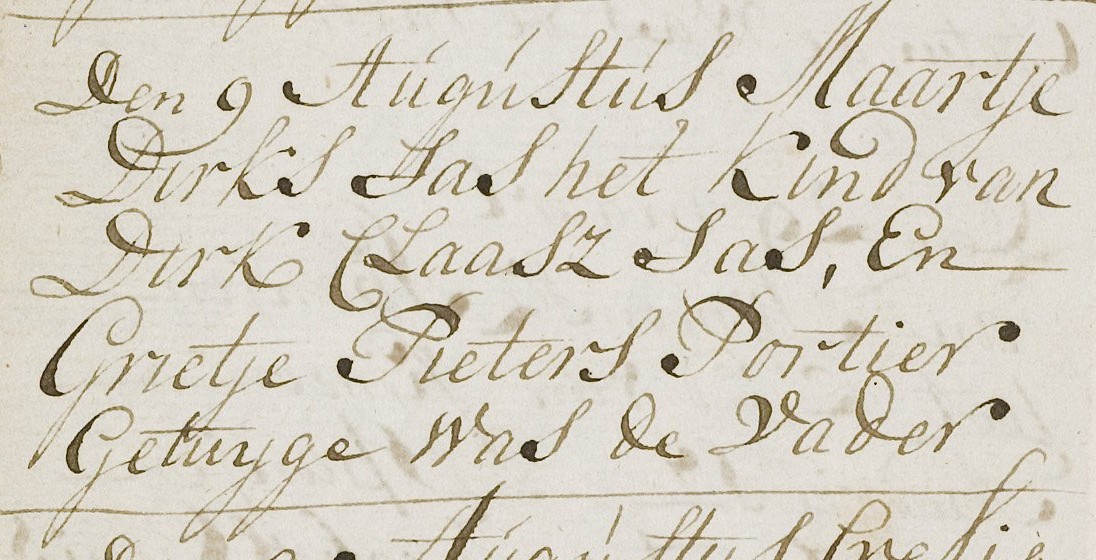 Den 9 Augustus Maartje
Dirks Sas het Kind van
Dirk Claasz Sas, En
Grietje Pieters Portier
Getuyge Was de Vader
Augustus